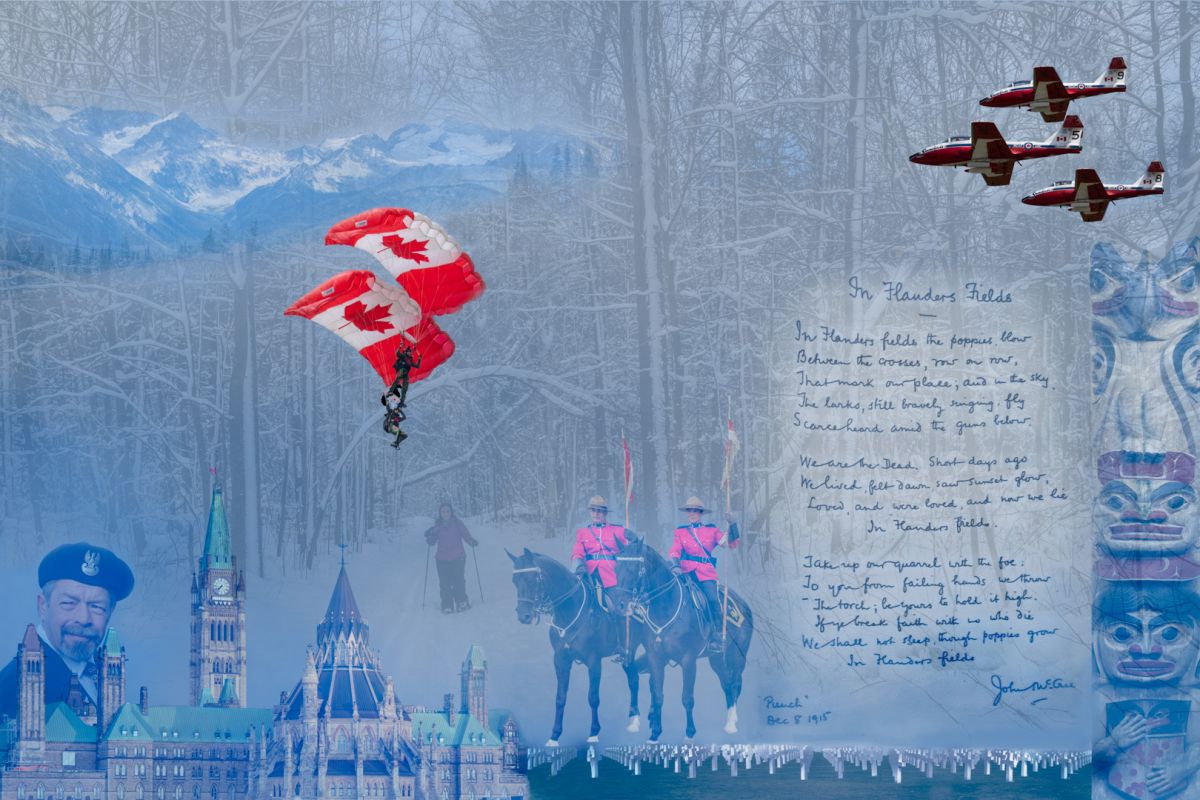 9
5
8
In Flanders Fields
In Flanders fields the poppies blow
Between the crosses, row on row,
That mark our place; and in the sky
The larks, still bravely singing, fly
Scarce heard amid the guns below.
We are the Dead. Short days ago
We lived, felt dawn, saw sunset glow,
Loved, and were loved, and now we lie
In Flanders fields.
Take up our quarrel with the foe:
To you from failing hands we throw
The torch; be yours to hold it high.
If ye break faith with us who die
We shall not sleep, though poppies grow
In Flanders fields
John McCrae
"Punch"
Dec 8 1915